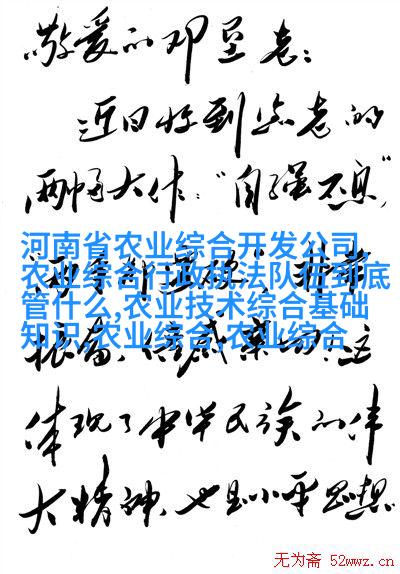 敬爱的邓垦老：
近日收到您老的
两幅大作："自强不息"
河南省农业综合开发公司,
农业综合行政执法队伍到底
管什么,农业技术综合基础
知识,农业综合,农业综合
振奋、倍感亲切！这
体现了中华民族的伟
大精神，也是小平思想
无为斋 52wwz.cn